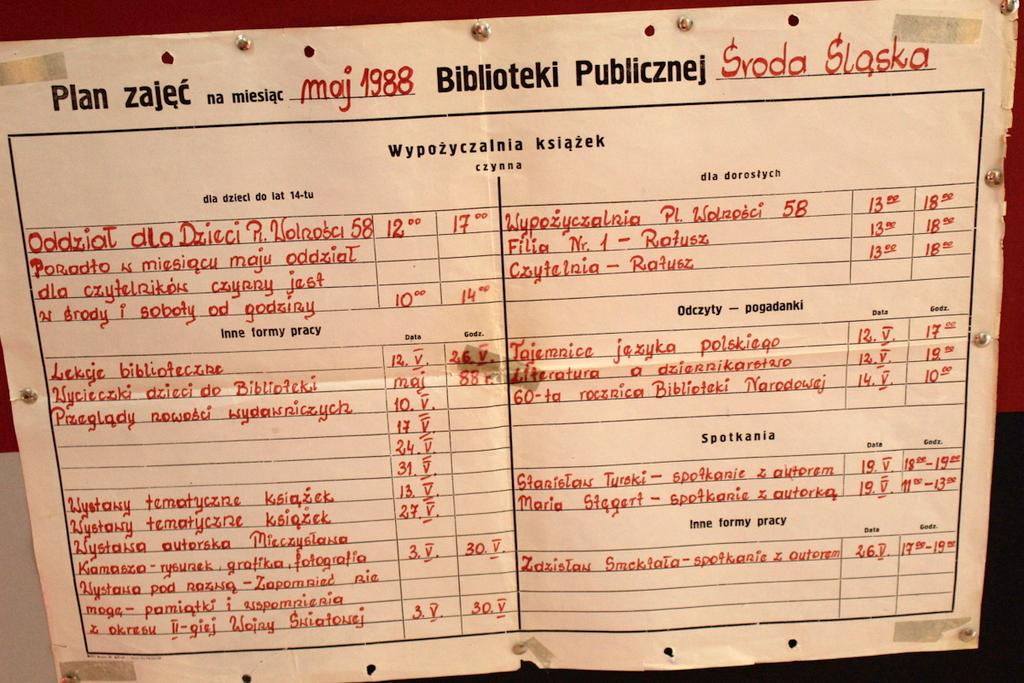 Plan zajęć na miesiąc maj 1988 Biblioteki Publicznej Środa Śląska
Wypożyczalnia książek
czynna
dla dzieci do lat 14-tu
Oddział dla Dzieci Pl. Wolności 58 12⁰⁰ 17⁰⁰
Ponadto w miesiącu maju oddział
dla czytelników czynny jest
w środy i soboty od godziny 10⁰⁰ 14⁰⁰
Inne formy pracy Data Godz.
Lekcje biblioteczne 12. V 26. V.
Wycieczki dzieci do Biblioteki maj 88 r.
Przeglądy nowości wydawniczych 10. V.
17 V.
24. V.
31. V.
Wystawy tematyczne książek 13. V.
Wystawy tematyczne książek 27. V.
Wystawa autorska Mieczysława
Kamasza - rysunek, grafika, fotografia 3. V. 30. V.
Wystawa pod nazwą - Zapomnieć nie
mogę - pamiątki i wspomnienia
z okresu II-giej Wojny Światowej 3. V. 30. V.
dla dorosłych
Wypożyczalnia Pl. Wolności 58 13⁰⁰ 18⁰⁰
Filia Nr. 1 - Ratusz 13⁰⁰ 18⁰⁰
Czytelnia - Ratusz 13⁰⁰ 18⁰⁰
Odczyty — pogadanki Data Godz.
Tajemnice języka polskiego 12. V. 17⁰⁰
Literatura a dziennikarstwo 12. V. 19⁰⁰
60-ta rocznica Biblioteki Narodowej 14. V. 10⁰⁰
Spotkania Data Godz.
Stanisław Turski - spotkanie z autorem 19. V 18⁰⁰-19⁰⁰
Maria Stęgert - spotkanie z autorką 19. V. 11⁰⁰-13⁰⁰
Inne formy pracy Data Godz.
Zdzisław Smektała - spotkanie z autorem 26. V. 17⁰⁰-19⁰⁰